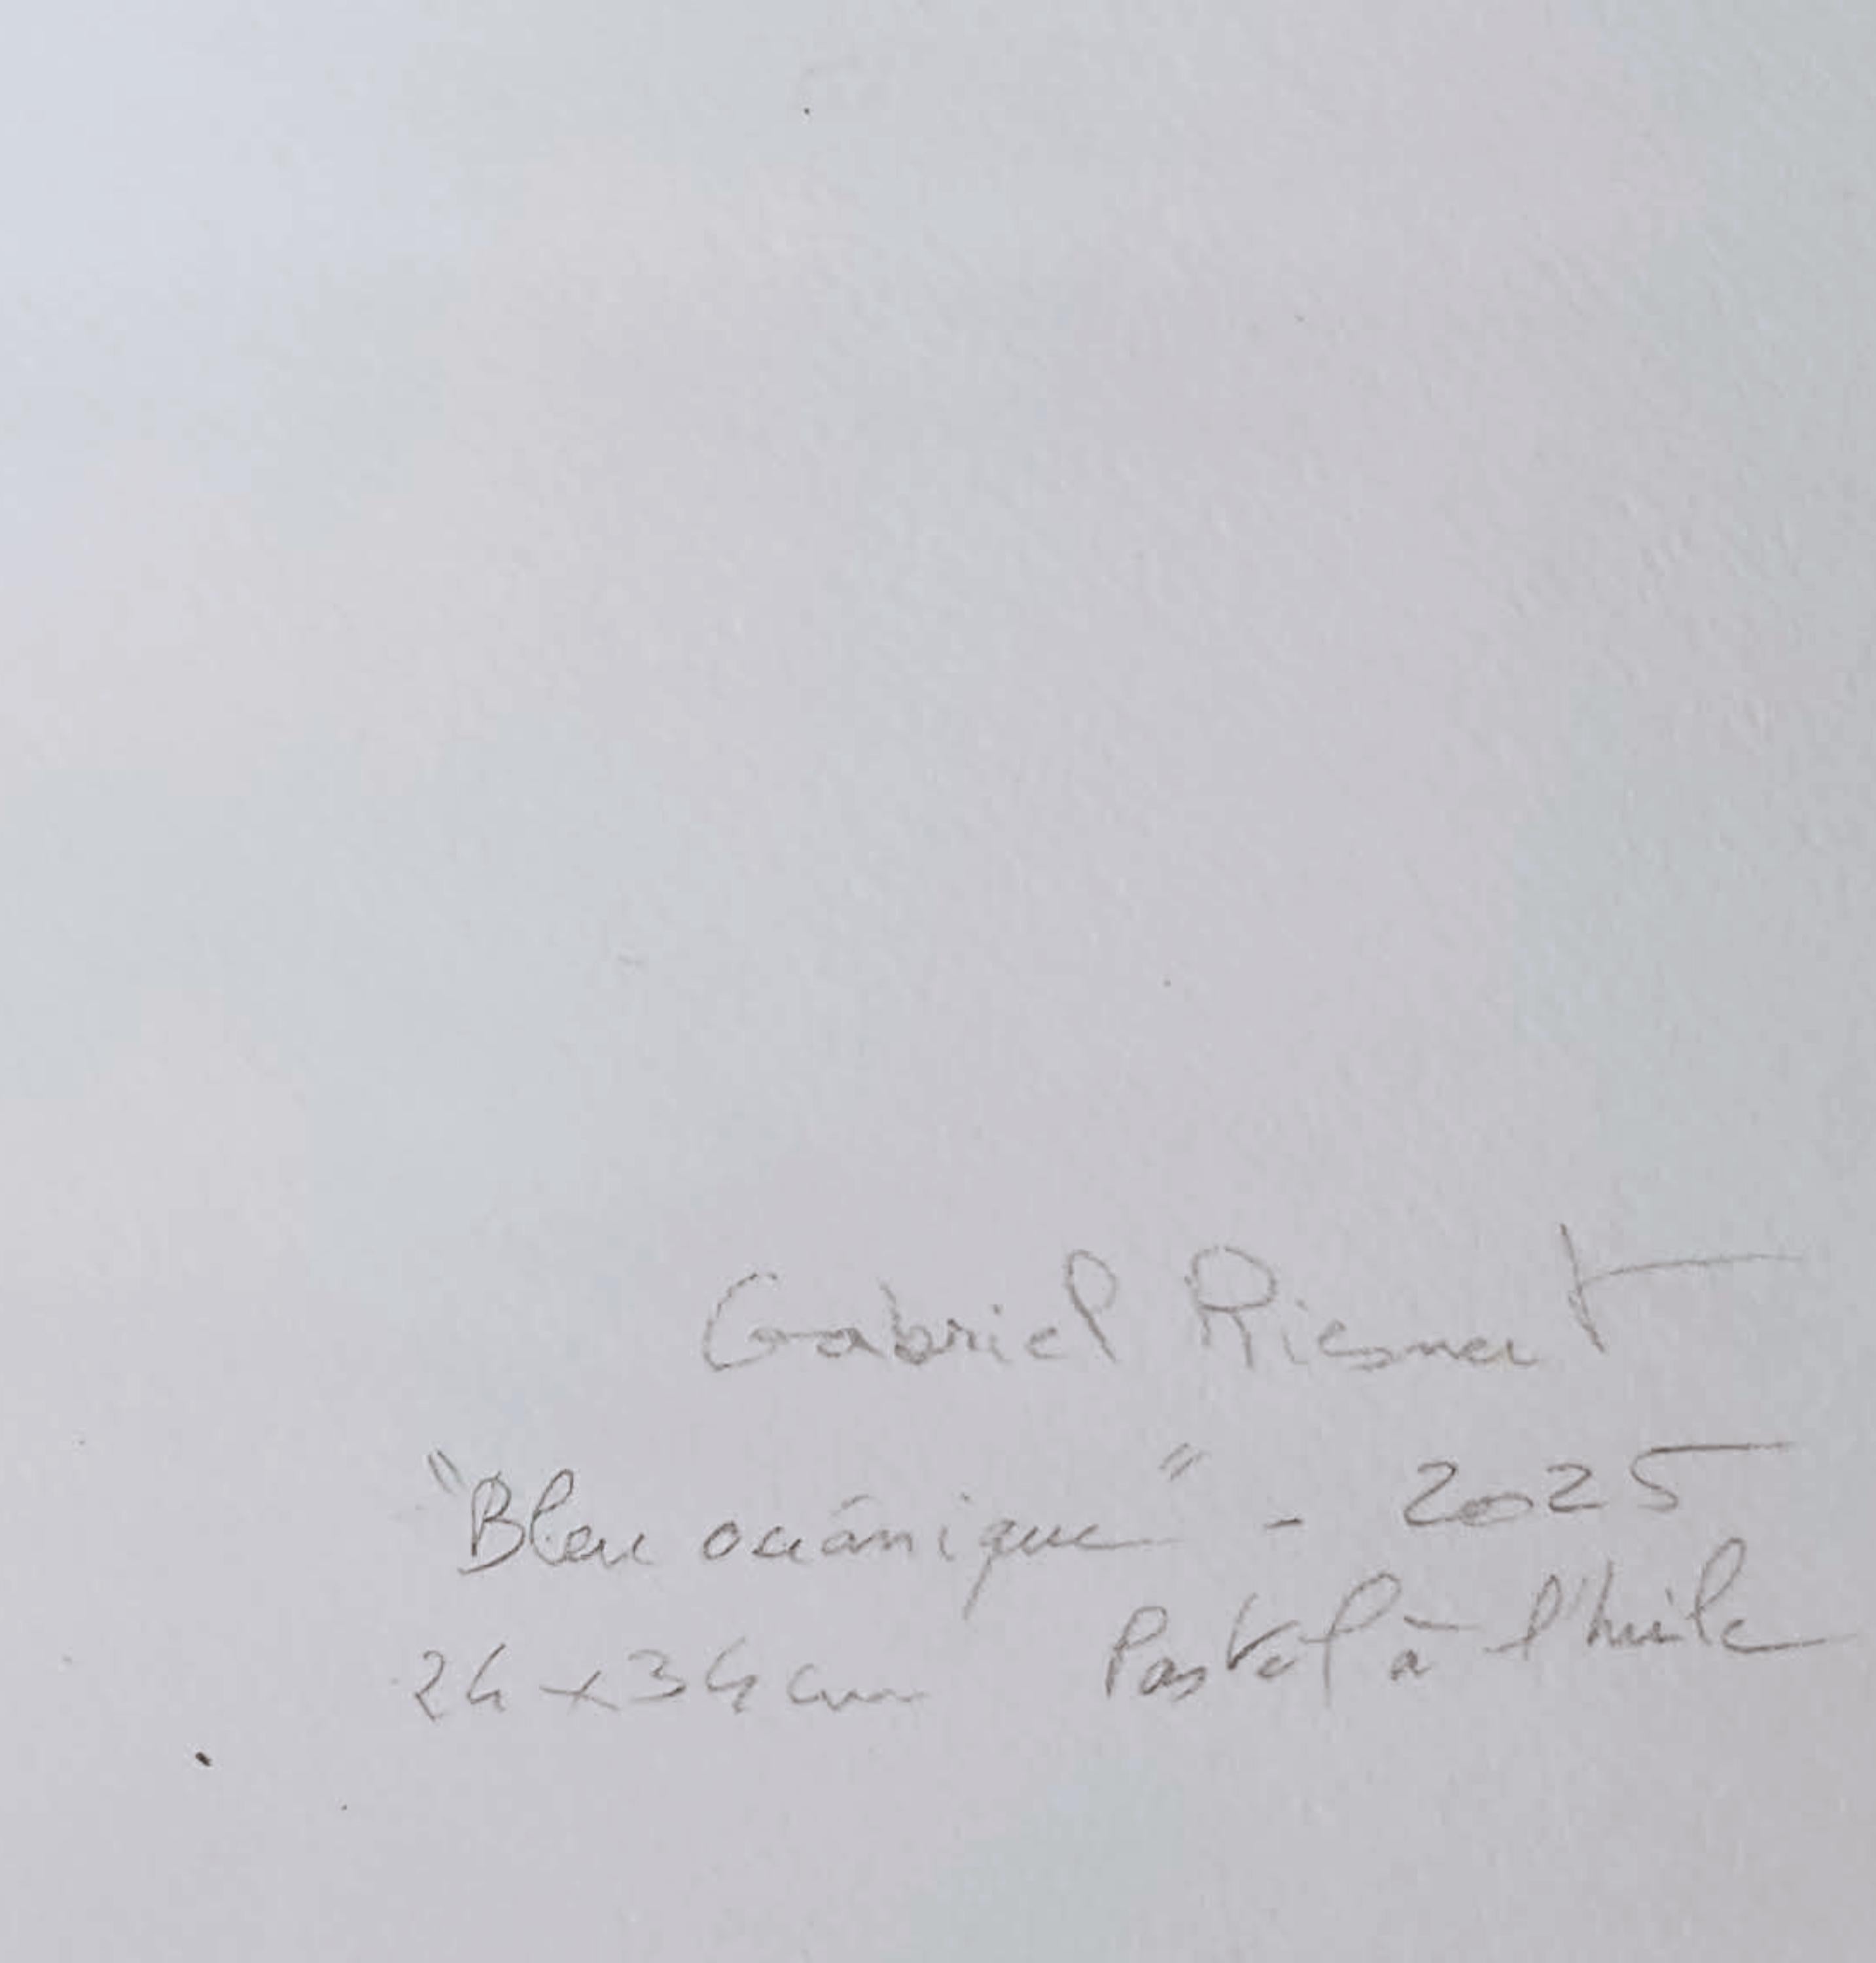 Gabriel Riesnert
"Bleu océanique" - 2025
24 x 34 cm Pastel à l'huile